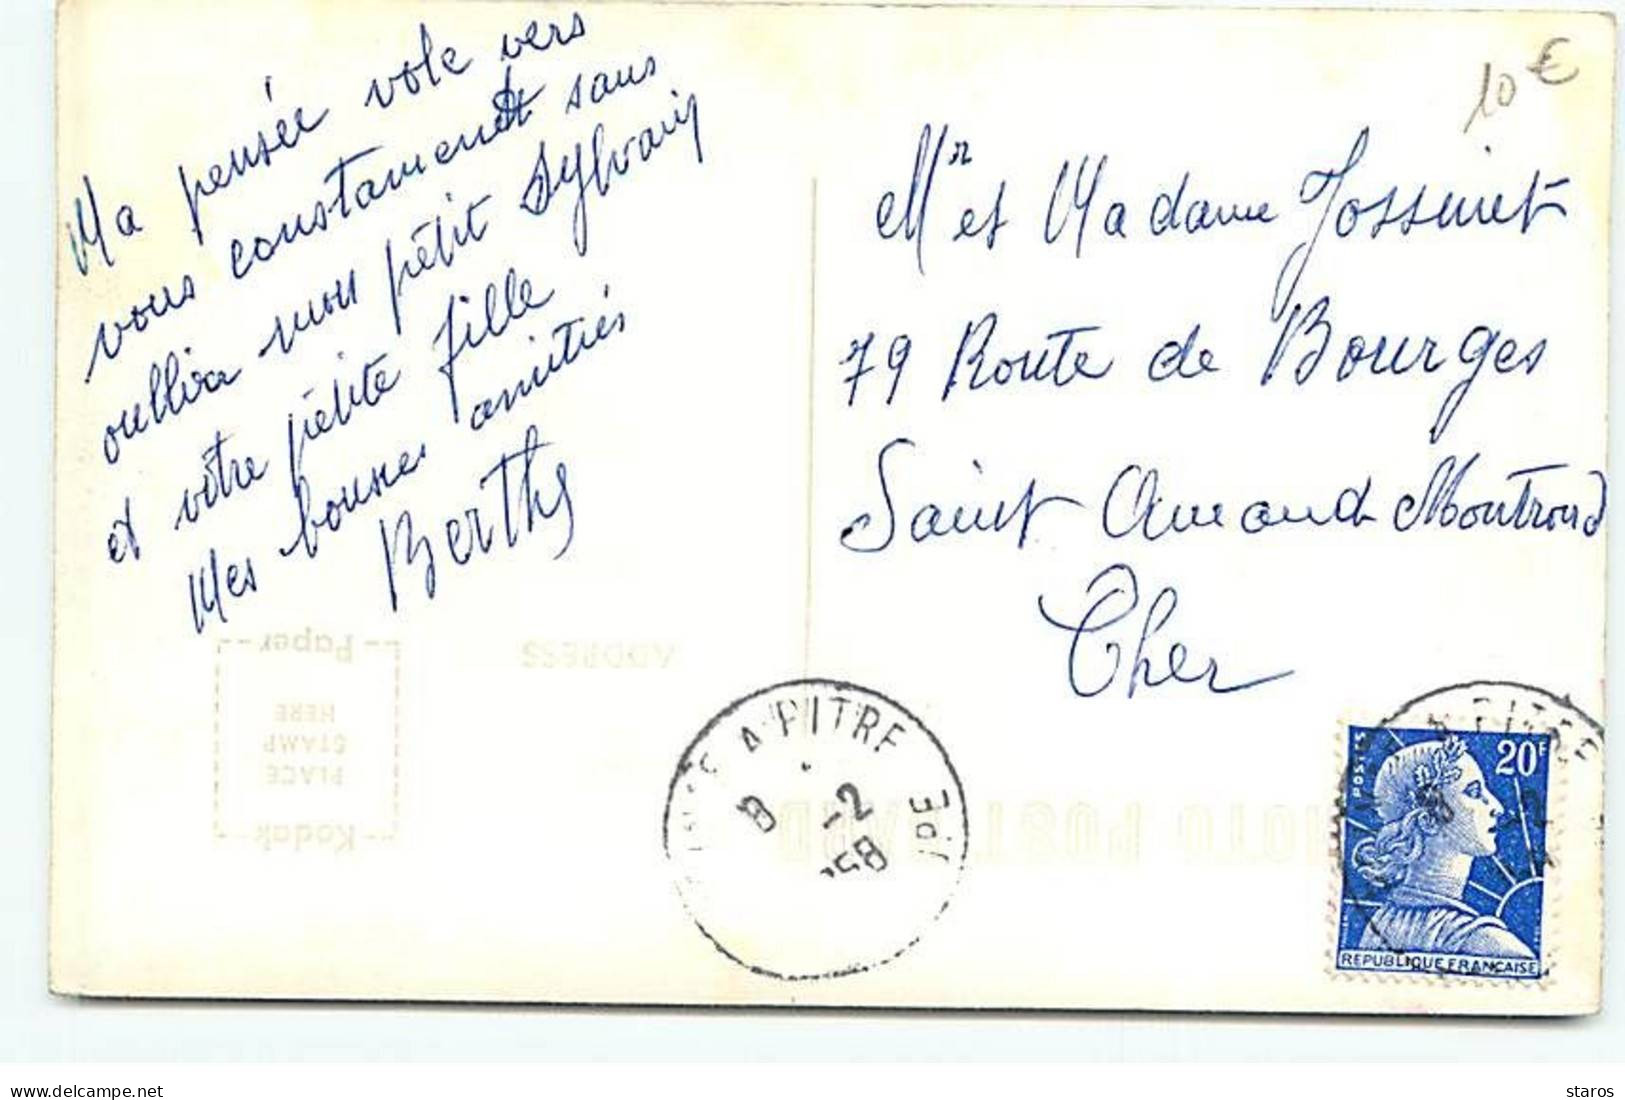 Ma pensée vole vers
vous constamment sans
oublier mon pétit Sylvain
et vôtre pétite fille
Mes bonnes amitiés
Berthy
10 €
Mr et Madame Jossinet
79 Route de Bourges
Saint Amand Montrond
Cher
Paper
ADDRESS
PLACE
STAMP
HERE
Kodak
PHOTO POST CARD
A PITRE
8 -2
58
POSTES
20F
REPUBLIQUE FRANÇAISE
delcampe.net
staros